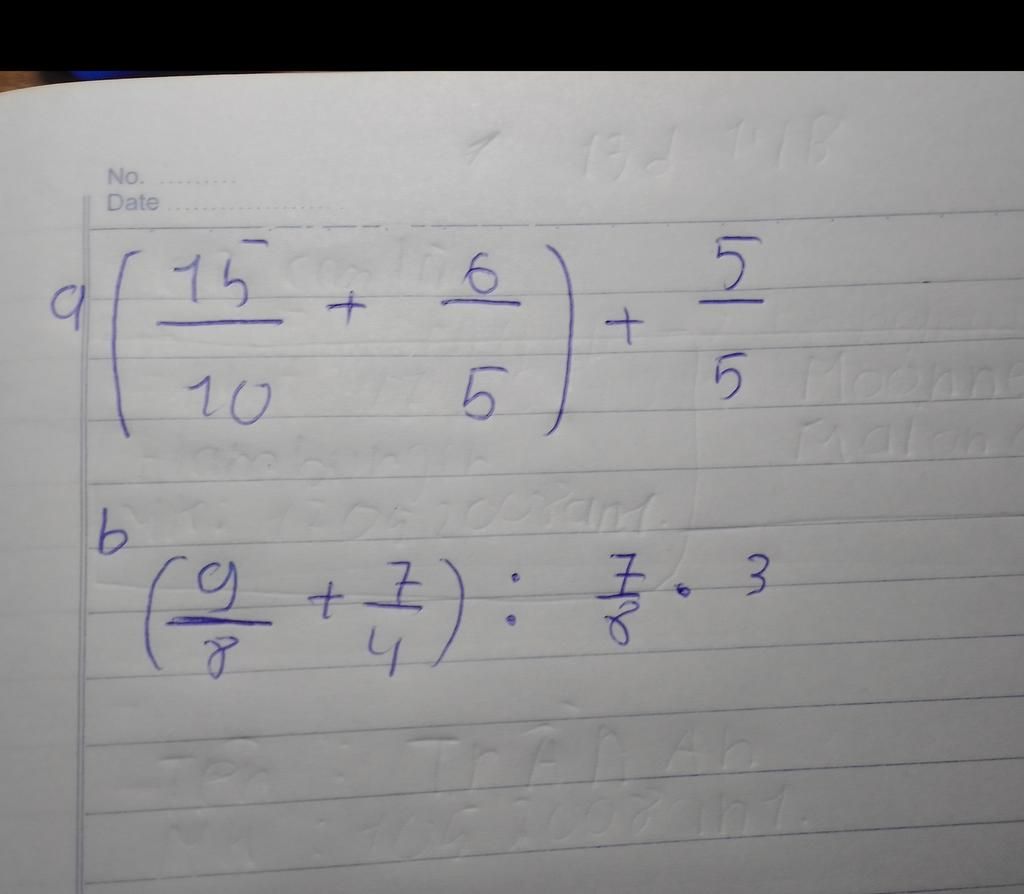 No. .........
Date ......................
a ( 15/10 + 6/5 ) + 5/5
b
( 9/8 + 7/4 ) : 7/8 . 3